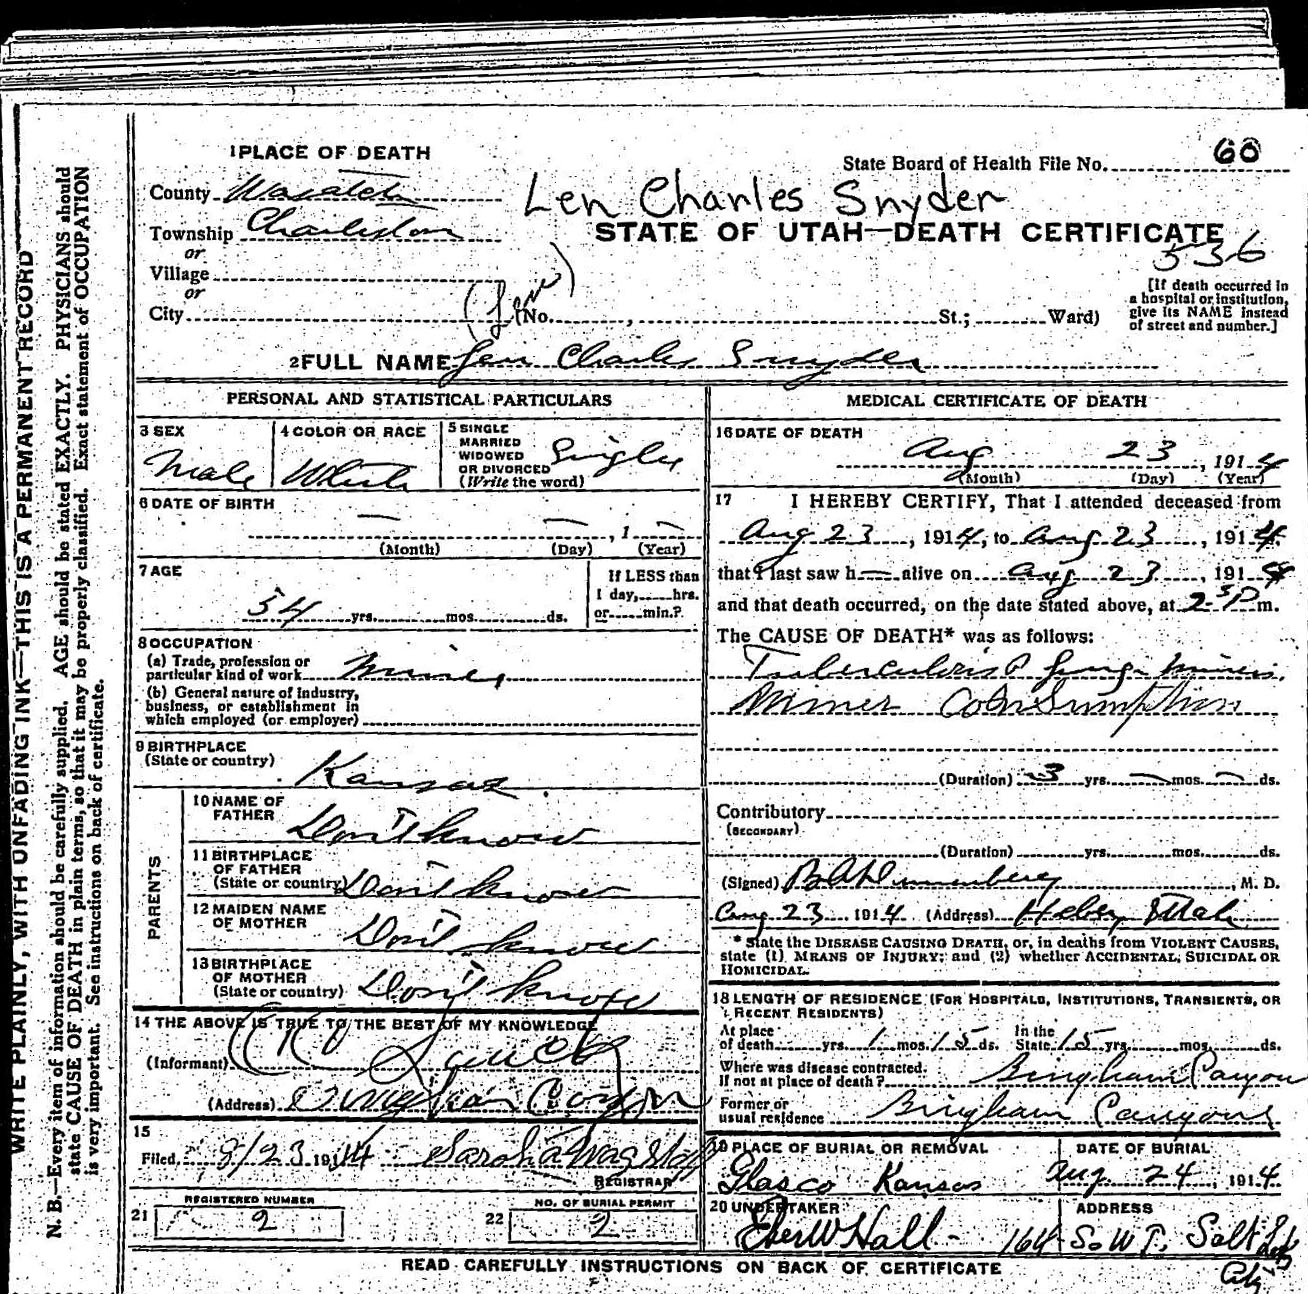 1 PLACE OF DEATH
State Board of Health File No. 60
County Wasatch
Len Charles Snyder
Township Charleston
STATE OF UTAH—DEATH CERTIFICATE
or
536
Village
or
[If death occurred in
a hospital or institution,
give its NAME instead
of street and number.]
(Len)
City (No. , St.; Ward)
2 FULL NAME Len Charles Snyder
WRITE PLAINLY, WITH UNFADING INK—THIS IS A PERMANENT RECORD
N. B.—Every item of information should be carefully supplied. AGE should be stated EXACTLY. PHYSICIANS should
state CAUSE OF DEATH in plain terms, so that it may be properly classified. Exact statement of OCCUPATION
is very important. See instructions on back of certificate.
PERSONAL AND STATISTICAL PARTICULARS
3 SEX
Male
4 COLOR OR RACE
White
5 SINGLE
MARRIED
WIDOWED
OR DIVORCED
(Write the word)
Single
6 DATE OF BIRTH
— — , 1 —
(Month) (Day) (Year)
7 AGE
34 yrs. mos. ds.
If LESS than
1 day, hrs.
or min.?
8 OCCUPATION
(a) Trade, profession or
particular kind of work Miner
(b) General nature of industry,
business, or establishment in
which employed (or employer)
9 BIRTHPLACE
(State or country) Kansas
PARENTS
10 NAME OF
FATHER Don't know
11 BIRTHPLACE
OF FATHER
(State or country) Don't know
12 MAIDEN NAME
OF MOTHER Don't know
13 BIRTHPLACE
OF MOTHER
(State or country) Don't know
14 THE ABOVE IS TRUE TO THE BEST OF MY KNOWLEDGE
(Informant)
(Address) Bingham Canyon
15
Filed 8/23 1914 Sarah Wagstaff
REGISTRAR
REGISTERED NUMBER
21 2
NO. OF BURIAL PERMIT
22 2
MEDICAL CERTIFICATE OF DEATH
16 DATE OF DEATH
Aug 23, 1914
(Month) (Day) (Year)
17 I HEREBY CERTIFY, That I attended deceased from
Aug 23, 1914, to Aug 23, 1914
that I last saw h— alive on Aug 23, 1914
and that death occurred, on the date stated above, at 2 30 P m.
The CAUSE OF DEATH* was as follows:
Tuberculosis Lungs miners
Miner Consumption
(Duration) 3 yrs. — mos. — ds.
Contributory
(SECONDARY)
(Duration) yrs. mos. ds.
(Signed) , M. D.
Aug 23 1914 (Address) Heber Utah
* State the DISEASE CAUSING DEATH, or, in deaths from VIOLENT CAUSES,
state (1) MEANS OF INJURY; and (2) whether ACCIDENTAL, SUICIDAL OR
HOMICIDAL.
18 LENGTH OF RESIDENCE (FOR HOSPITALS, INSTITUTIONS, TRANSIENTS, OR
RECENT RESIDENTS)
At place
of death yrs. 1 mos. 15 ds. In the
State 15 yrs. mos. ds.
Where was disease contracted,
If not at place of death? Bingham Canyon
Former or
usual residence Bingham Canyon
19 PLACE OF BURIAL OR REMOVAL
Glasco Kansas
DATE OF BURIAL
Aug 24, 1914
20 UNDERTAKER
Eber W Hall
ADDRESS
164 So. W T. Salt Lake
City
READ CAREFULLY INSTRUCTIONS ON BACK OF CERTIFICATE